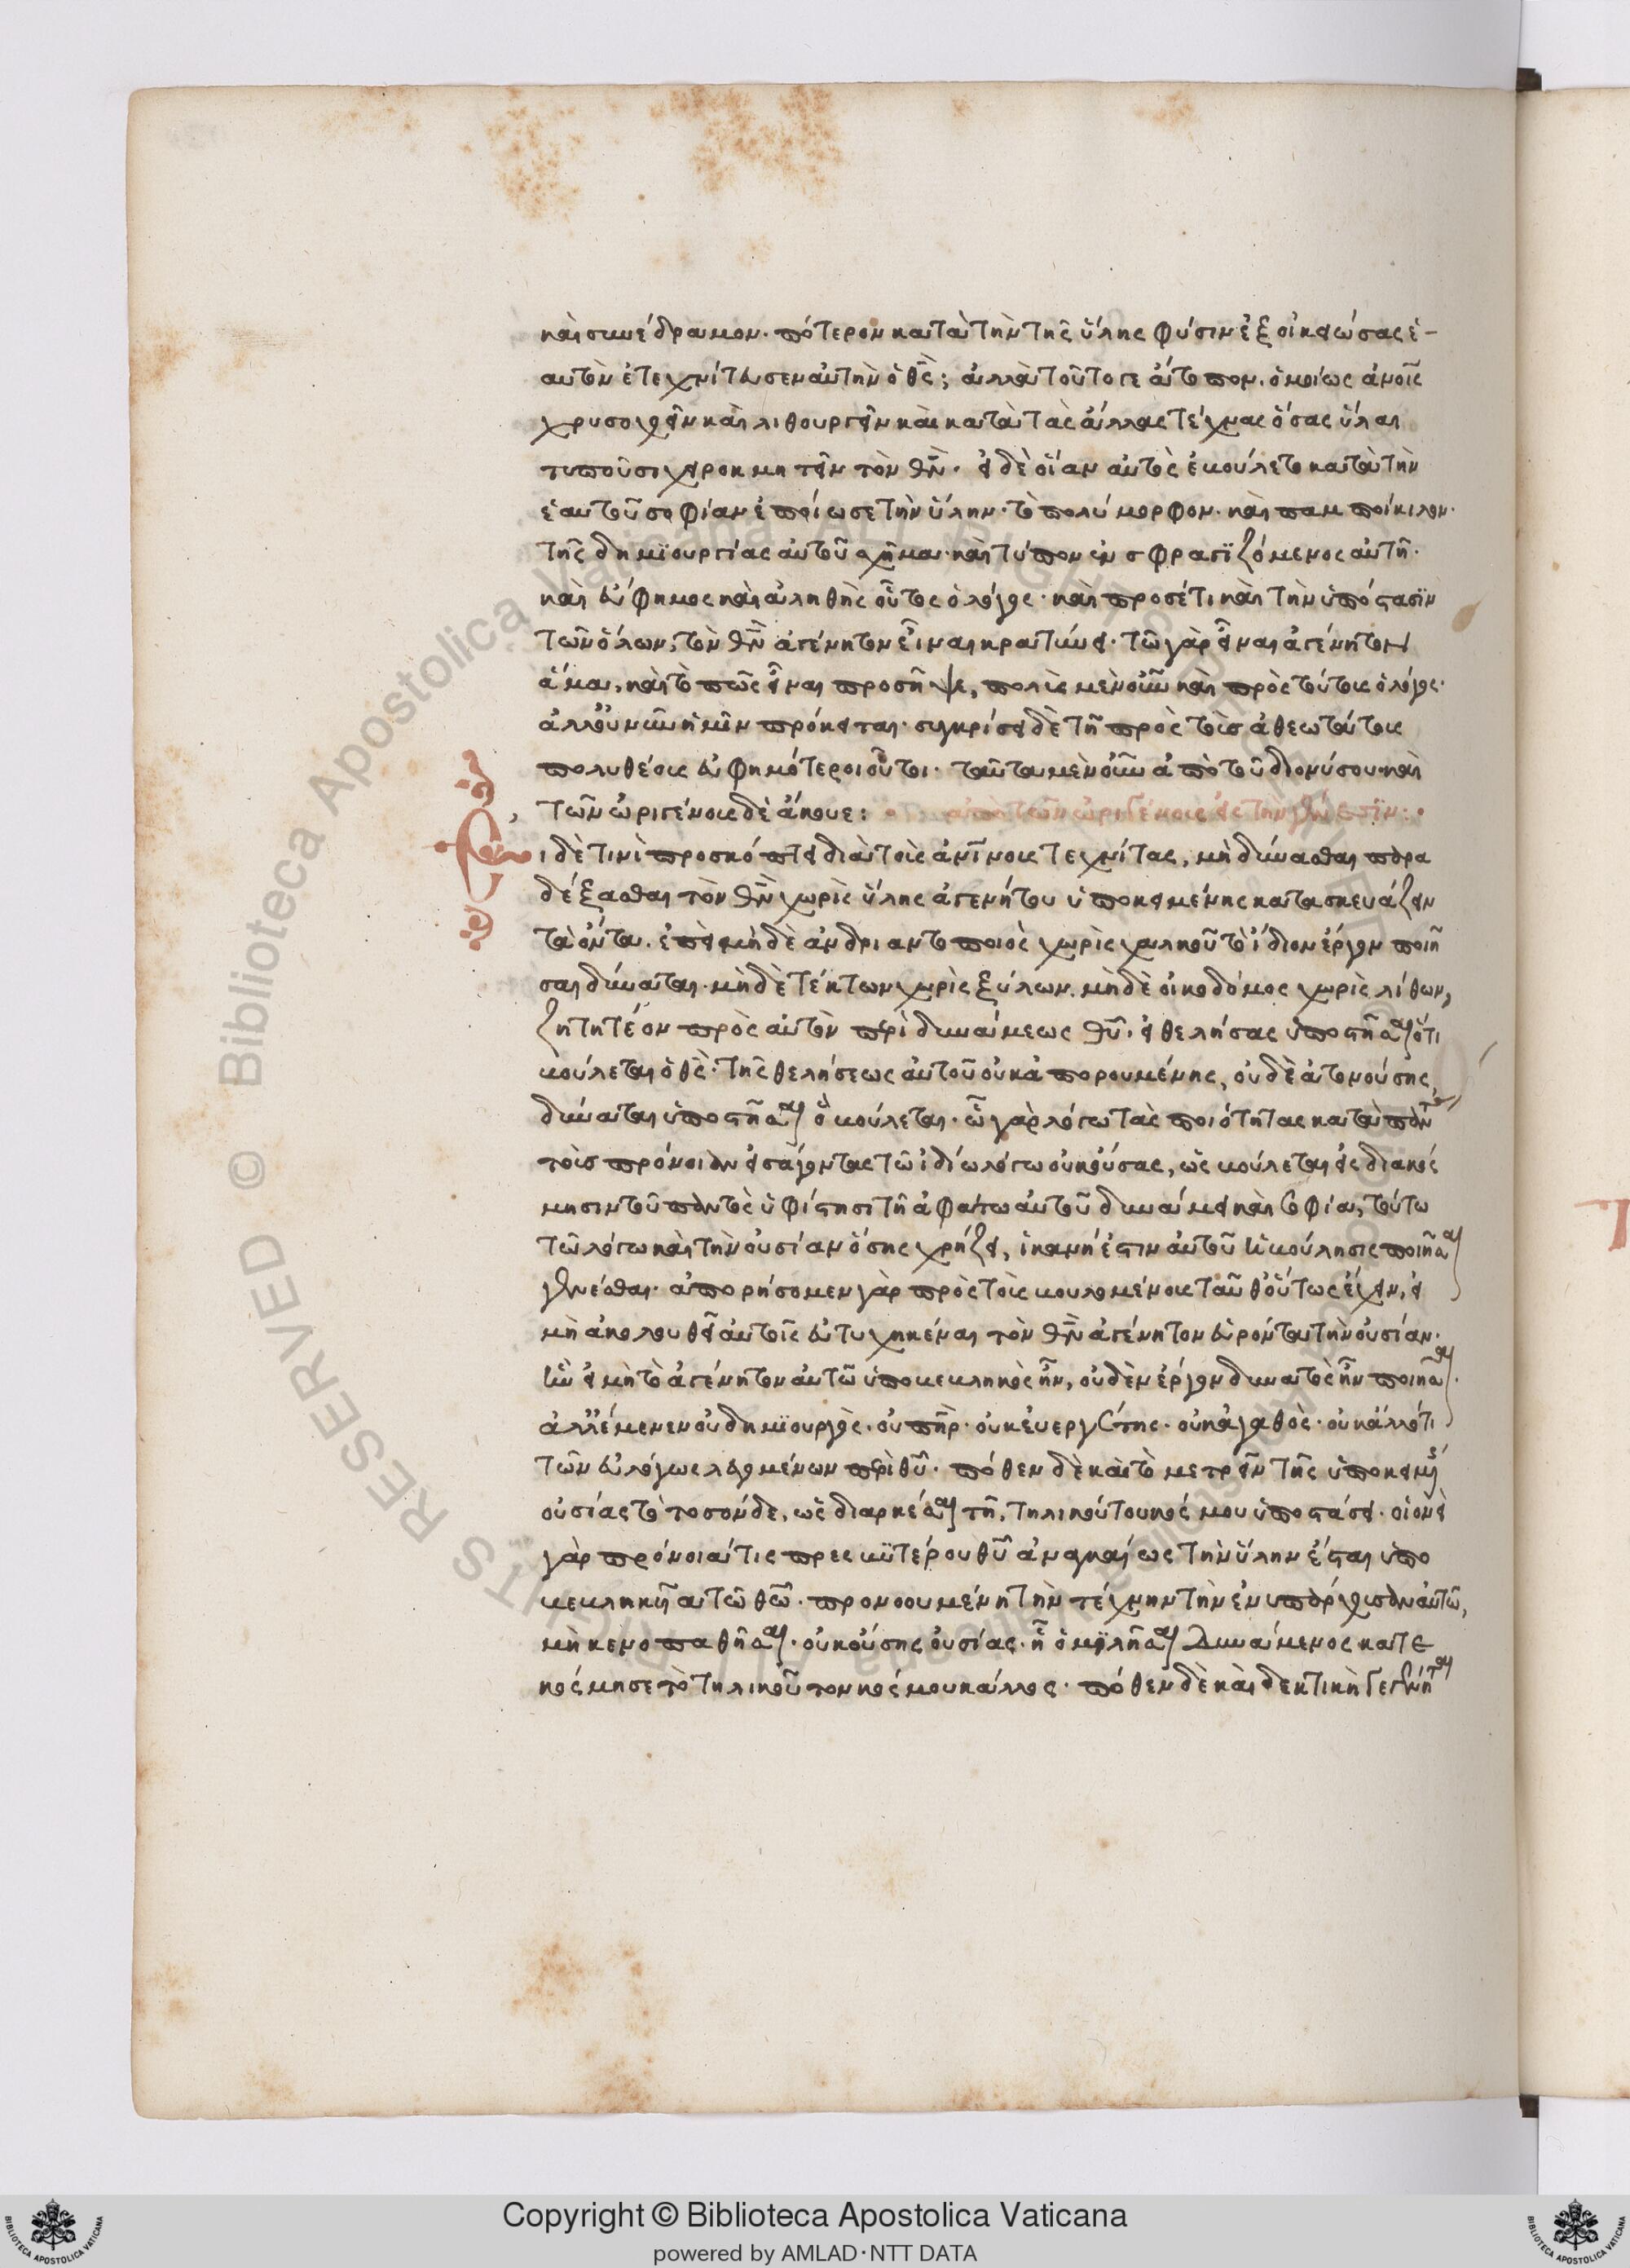 καὶ συνέδραμον. πότερον κατὰ τὴν τῆς ὕλης φύσιν ἐξοικειώσας ἑ-
αυτὸν ἐτεχνίτευσεν αὐτὴν ὁ θς̅; ἀλλὰ τοῦτό γε ἄτοπον. ὁμοίως ἀν οἷς
χρυσοχεῖν καὶ λιθουργεῖν καὶ κατὰ τὰς ἄλλας τέχνας ὅσας ὕλαι
τυποῦσι χειροκμητεῖν τὸν θν̅. εἰ δὲ οἵαν αὐτὸς ἐβούλετο κατὰ τὴν
ἑαυτοῦ σοφίαν ἐποίωσε τὴν ὕλην. τὸ πολύμορφον. καὶ παμποίκιλον.
τῆς δημϊουργίας αὐτοῦ σχῆμα. καὶ τύπον ἐνσφραγϊζόμενος αὐτῇ.
καὶ εὔφημος καὶ ἀληθὴς οὗτος ὁ λόγος. καὶ προσέτι καὶ τὴν ὑπόστασϊν
τῶν ὅλων, τὸν θν̅ ἀγένητον εἶναι κρατύνει. τῶ γὰρ εἶναι ἀγένητον
ἅμα, καὶ τὸ πῶς εἶναι προσῆψε, πολὺς μὲν οὖν καὶ πρὸς τούτους ὁ λόγος.
ἀλλ' οὐ νῦν ἡμῖν πρόκειται. συγκρίσει δὲ τῇ πρὸς τοὺς ἀθεωτάτους
πολυθέους εὐφημότεροι οὗτοι. ταῦτα μὲν οὖν ἀπὸ τοῦ διονύσου. καὶ
τῶν ὠριγένους δὲ ἄκουε: ἀπὸ τῶν ὠριγένους εἰς τὴν γένεσϊν:
Ει δέ τινι προσκόπτει διὰ τοὺς ἀνίνους τεχνίτας, μὴ δύνασθαι παρα
δέξασθαι τὸν θν̅ χωρὶς ὕλης ἀγενήτου ὑποκειμένης κατασκευάζειν
τὰ ὄντα. ἐπεὶ μὴ δὲ ἀνδριαντοποιὸς χωρὶς χαλκοῦ τὸ ἴδιον ἔργον ποιῆ
σαι δύναται. μὴ δὲ τέκτων χωρὶς ξύλων. μὴ δὲ οἰκοδόμος χωρὶς λίθων,
ζητητέον πρὸς αὐτὸν περὶ δυνάμεως θυ̅. εἰ θελήσας ὑποστῆσαι ὅ τι
βούλεται ὁ θς̅. τῆς θελήσεως αὐτοῦ οὐκ ἀπορουμένης, οὐδὲ ἀτονούσης,
δύναται ὑποστῆσαι ὃ βούλεται. ᾧ γὰρ λόγω τὰς ποιότητας κατὰ πάντας
τοὺς πρόνοιαν εἰσάγοντας τῶ ἰδίω λόγω οὐκ οὔσας, ὡς βούλεται εἰς διακόσ
μησιν τοῦ παντὸς ὑφίστησι τῇ ἀφάτω αὐτοῦ δυνάμει καὶ σοφία, τούτω
τῶ λόγω καὶ τὴν οὐσίαν ὅσης χρήζει, ἱκανή ἐστιν αὐτοῦ ἡ βούλησις ποιῆσαι
γενέσθαι. ἀπορήσομεν γὰρ πρὸς τοὺς βουλομένους ταῦθ' οὕτως ἔχειν, εἰ
μὴ ἀκολουθεῖ αὐτοῖς εὐτυχηκέναι τὸν θν̅ ἀγένητον εὑρόντα τὴν οὐσίαν.
ἣν εἰ μὴ τὸ ἀγένητον αὐτῶ ὑποβεβληκὸς ἦν, οὐδὲν ἔργον δυνατὸς ἦν ποιῆσαι.
ἀλλ' ἔμενεν οὐ δημϊουργὸς. οὐ πηρ̅. οὐκ ἐυεργέτης. οὐκ ἀγαθὸς. οὐκ ἄλλό τι
τῶν εὐλόγως λεγομένων περὶ θυ̅. πόθεν δὲ καὶ τὸ μετρεῖν τῆς ὑποκειμένης
οὐσίας τὸ τοσόνδε, ὡς διαρκέσαι τῇ, τηλικούτου κόσμου ὑποστάσει. οἱονεὶ
γὰρ πρόνοιά τις πρεσβϋτέρου θυ̅ ἀναγκαίως τὴν ὕλην ἔσται ὑπο
βεβληκυῖα τῶ θω̅. προνοουμένη τὴν τέχνην τὴν ἐνυπάρχουσαν αὐτῶ,
μὴ κενοπαθῆσαι. οὐκ οὔσης οὐσίας. ᾗ ὁμϊλῆσαι δυνάμενος κατε
κόσμησε τὸ τηλικοῦτον κόσμου κάλλος. πόθεν δὲ καὶ δεκτικὴ γεγένηται
Copyright © Biblioteca Apostolica Vaticana
powered by AMLAD·NTT DATA